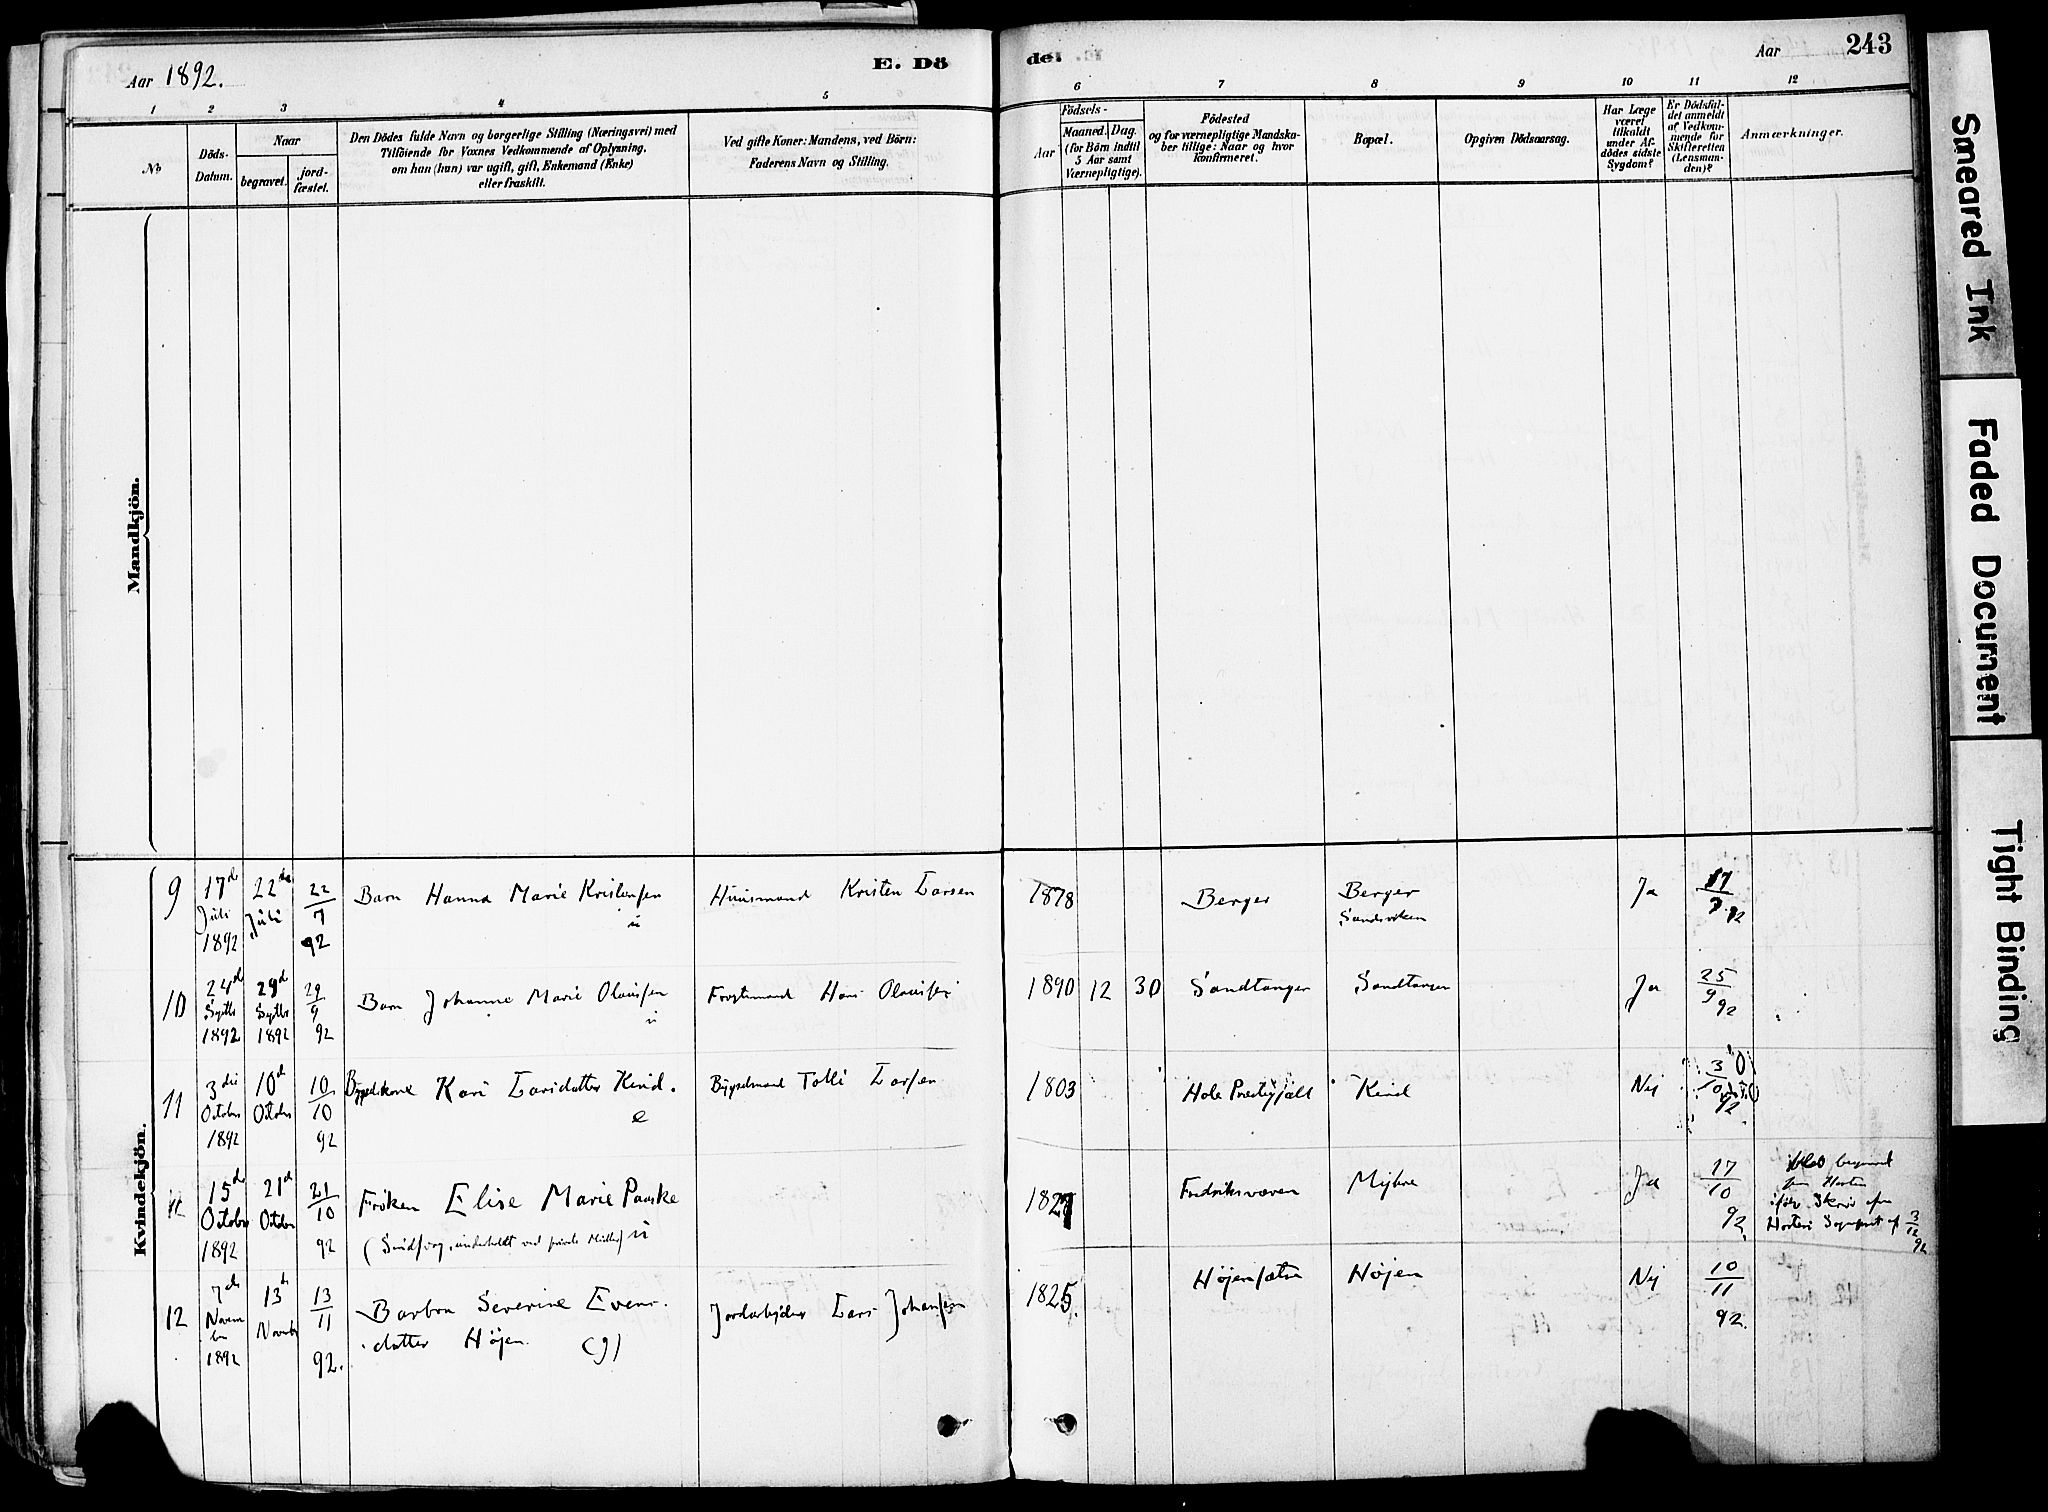 Aar 1892.
E. Dö
de.
Aar
243
1 2 3 4 5 6 7 8 9 10 11 12
No
Döds-
Datum.
Naar
begravet.
jord-
fæstet.
Den Dödes fulde Navn og borgerlige Stilling (Næringsvei) med
Tilföiende for Voxnes Vedkommende af Oplysning,
om han (hun) var ugift, gift, Enkemand (Enke)
eller fraskilt.
Ved gifte Koner: Mandens, ved Börn:
Faderens Navn og Stilling.
Födsels-
Aar
Maaned.
Dag.
(for Börn indtil
5 Aar samt
Værnepligtige).
Födested
og for værnepligtige Mandska-
ber tillige: Naar og hvor
konfirmeret.
Bopæl.
Opgiven Dödsaarsag.
Har Læge
været
tilkaldt
under Af-
dödes sidste
Sygdom?
Er Dödsfal-
det anmeldt
af Vedkom-
mende for
Skifteretten
(Lensman-
den)?
Anmærkninger.
Mandkjön.
Kvindekjön.
9
17de
Juli
1892
22de
Juli
22
7
92
Barn Hanna Marie Kristensen
u
Huusmand Kristen Larsen
1878
Berger
Berger
Sandviken
Ja
17
7 92
10
24d
Septbr
1892
29d
Septbr
1892
29
9
92
Barn Johanne Marie Olausen
u
Hans Olausen
1890 12 30
Sandtangen
Sandtangen
Ja
25
9
92
11
3die
October
1892
10d
October
10
10
92
Kari Larsdatter Kind.
e
Bygselmand Tolli Larsen
1803
Hole Prestegjæld
Kind
Nej
3
10
92
15d
October
1892
21d
October
21
10
92
Frøken Elise Marie Paaske
u
Fredriksværen
Myhre
Ja
17
10
92
blev begravet
fra Horten
3
12
92
12
7de
Novem
ber
1892
13d
Novmbr
13
11
92.
Barbra Severine Evens-
datter Højen (g)
Jordarbejder Lars Johansen
1825
Højensætra
Højen
Nej
10
11
92.
Smeared Ink
Faded Document
Tight Binding